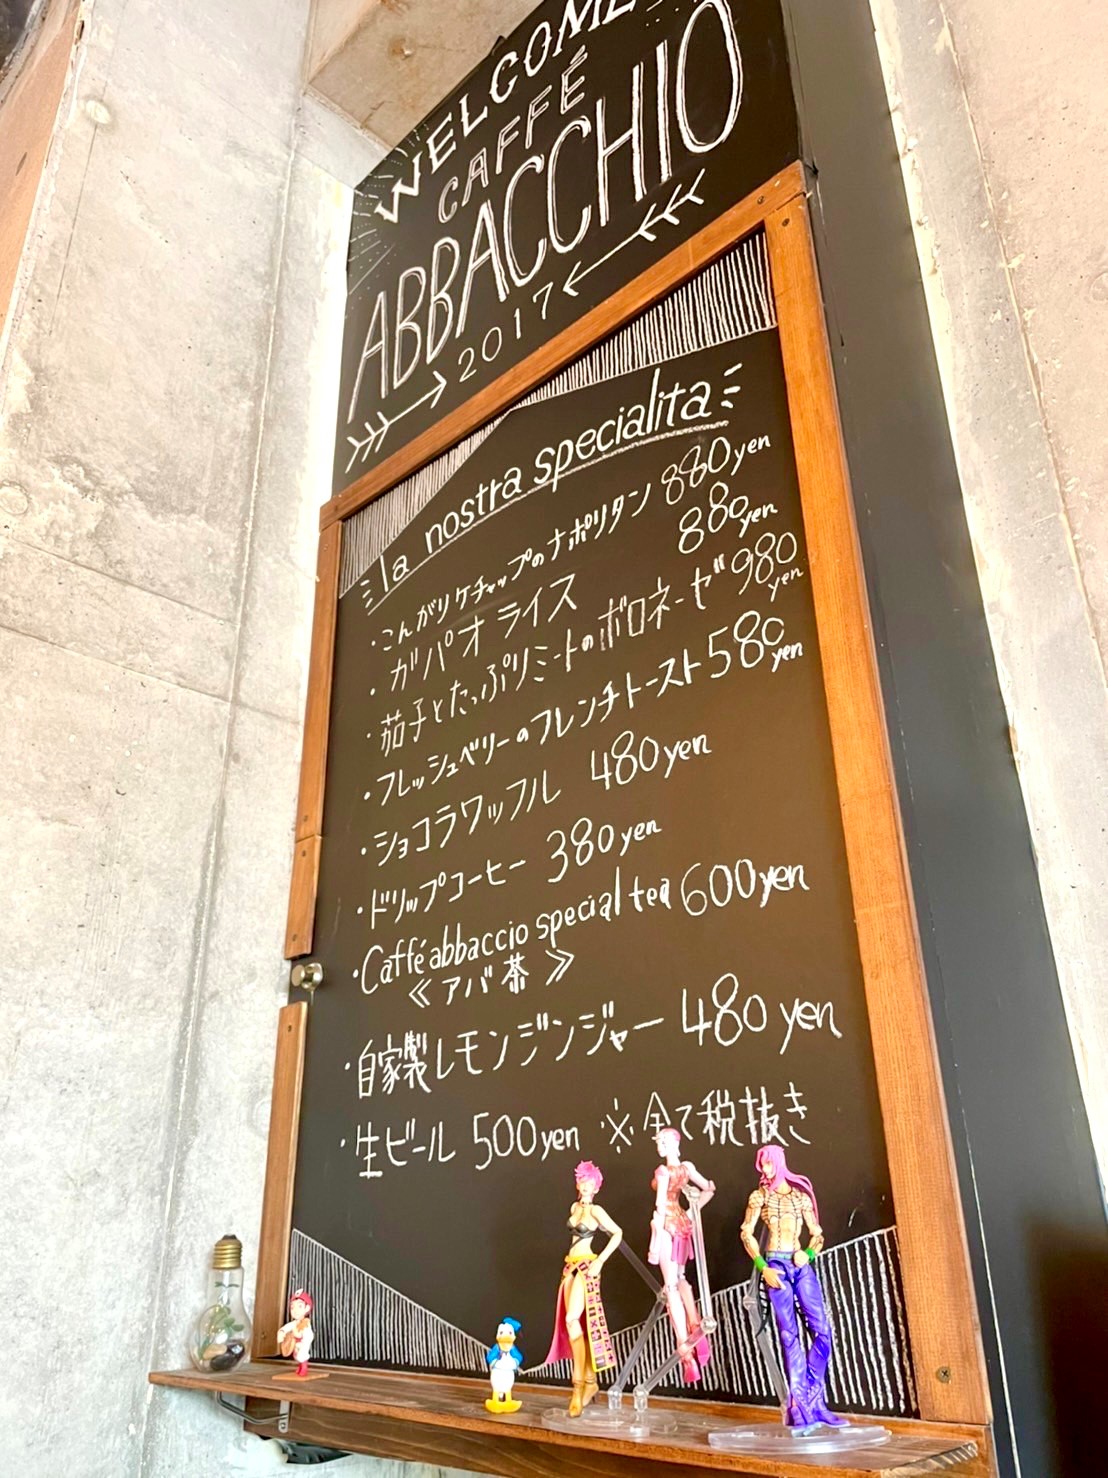 WELCOME
CAFFÉ
ABBACCHIO
2017
la nostra specialita
・こんがりケチャップのナポリタン 880yen
・ガパオ ライス 880yen
・茄子とたっぷりミートのボロネーゼ 980yen
・フレッシュベリーのフレンチトースト 580yen
・ショコラワッフル 480yen
・ドリップコーヒー 380yen
・Caffé abbaccio special tea 600yen
≪アバ茶≫
・自家製レモンジンジャー 480yen
・生ビール 500yen ※全て税抜き